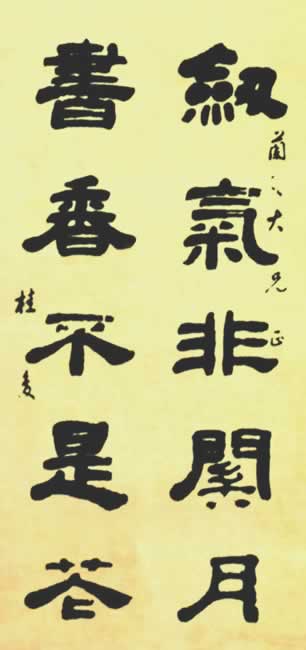 紉氣非關月
蘭之大兄正
書香不是花
桂馥